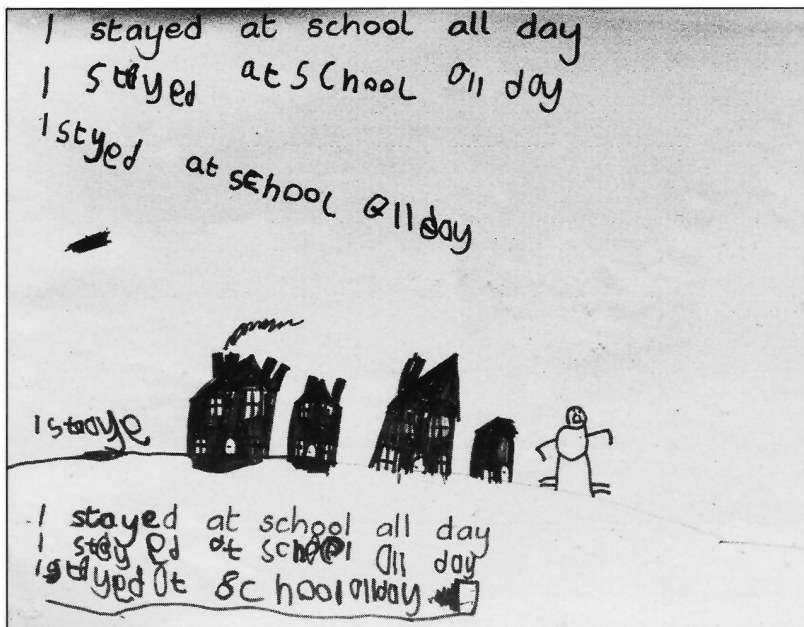 I stayed at school all day
I stayed at school all day
I styed at school all day
I staye
I stayed at school all day
I stayed at school all day
I stayed at school all day